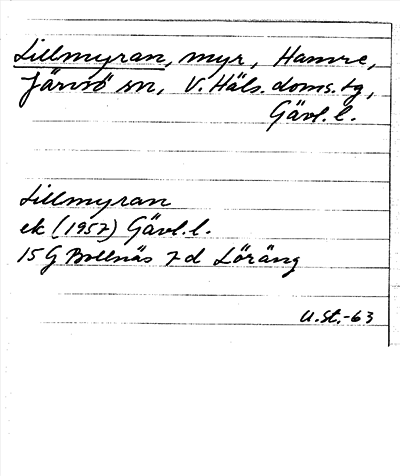 Lillmyran, myr, Hamre,
Järvsö sn, V. Häls. doms.tg,
Gävl. l.
Lillmyran
ek (1957) Gävl. l.
15 G Bollnäs 7 d Löräng
U.St.-63